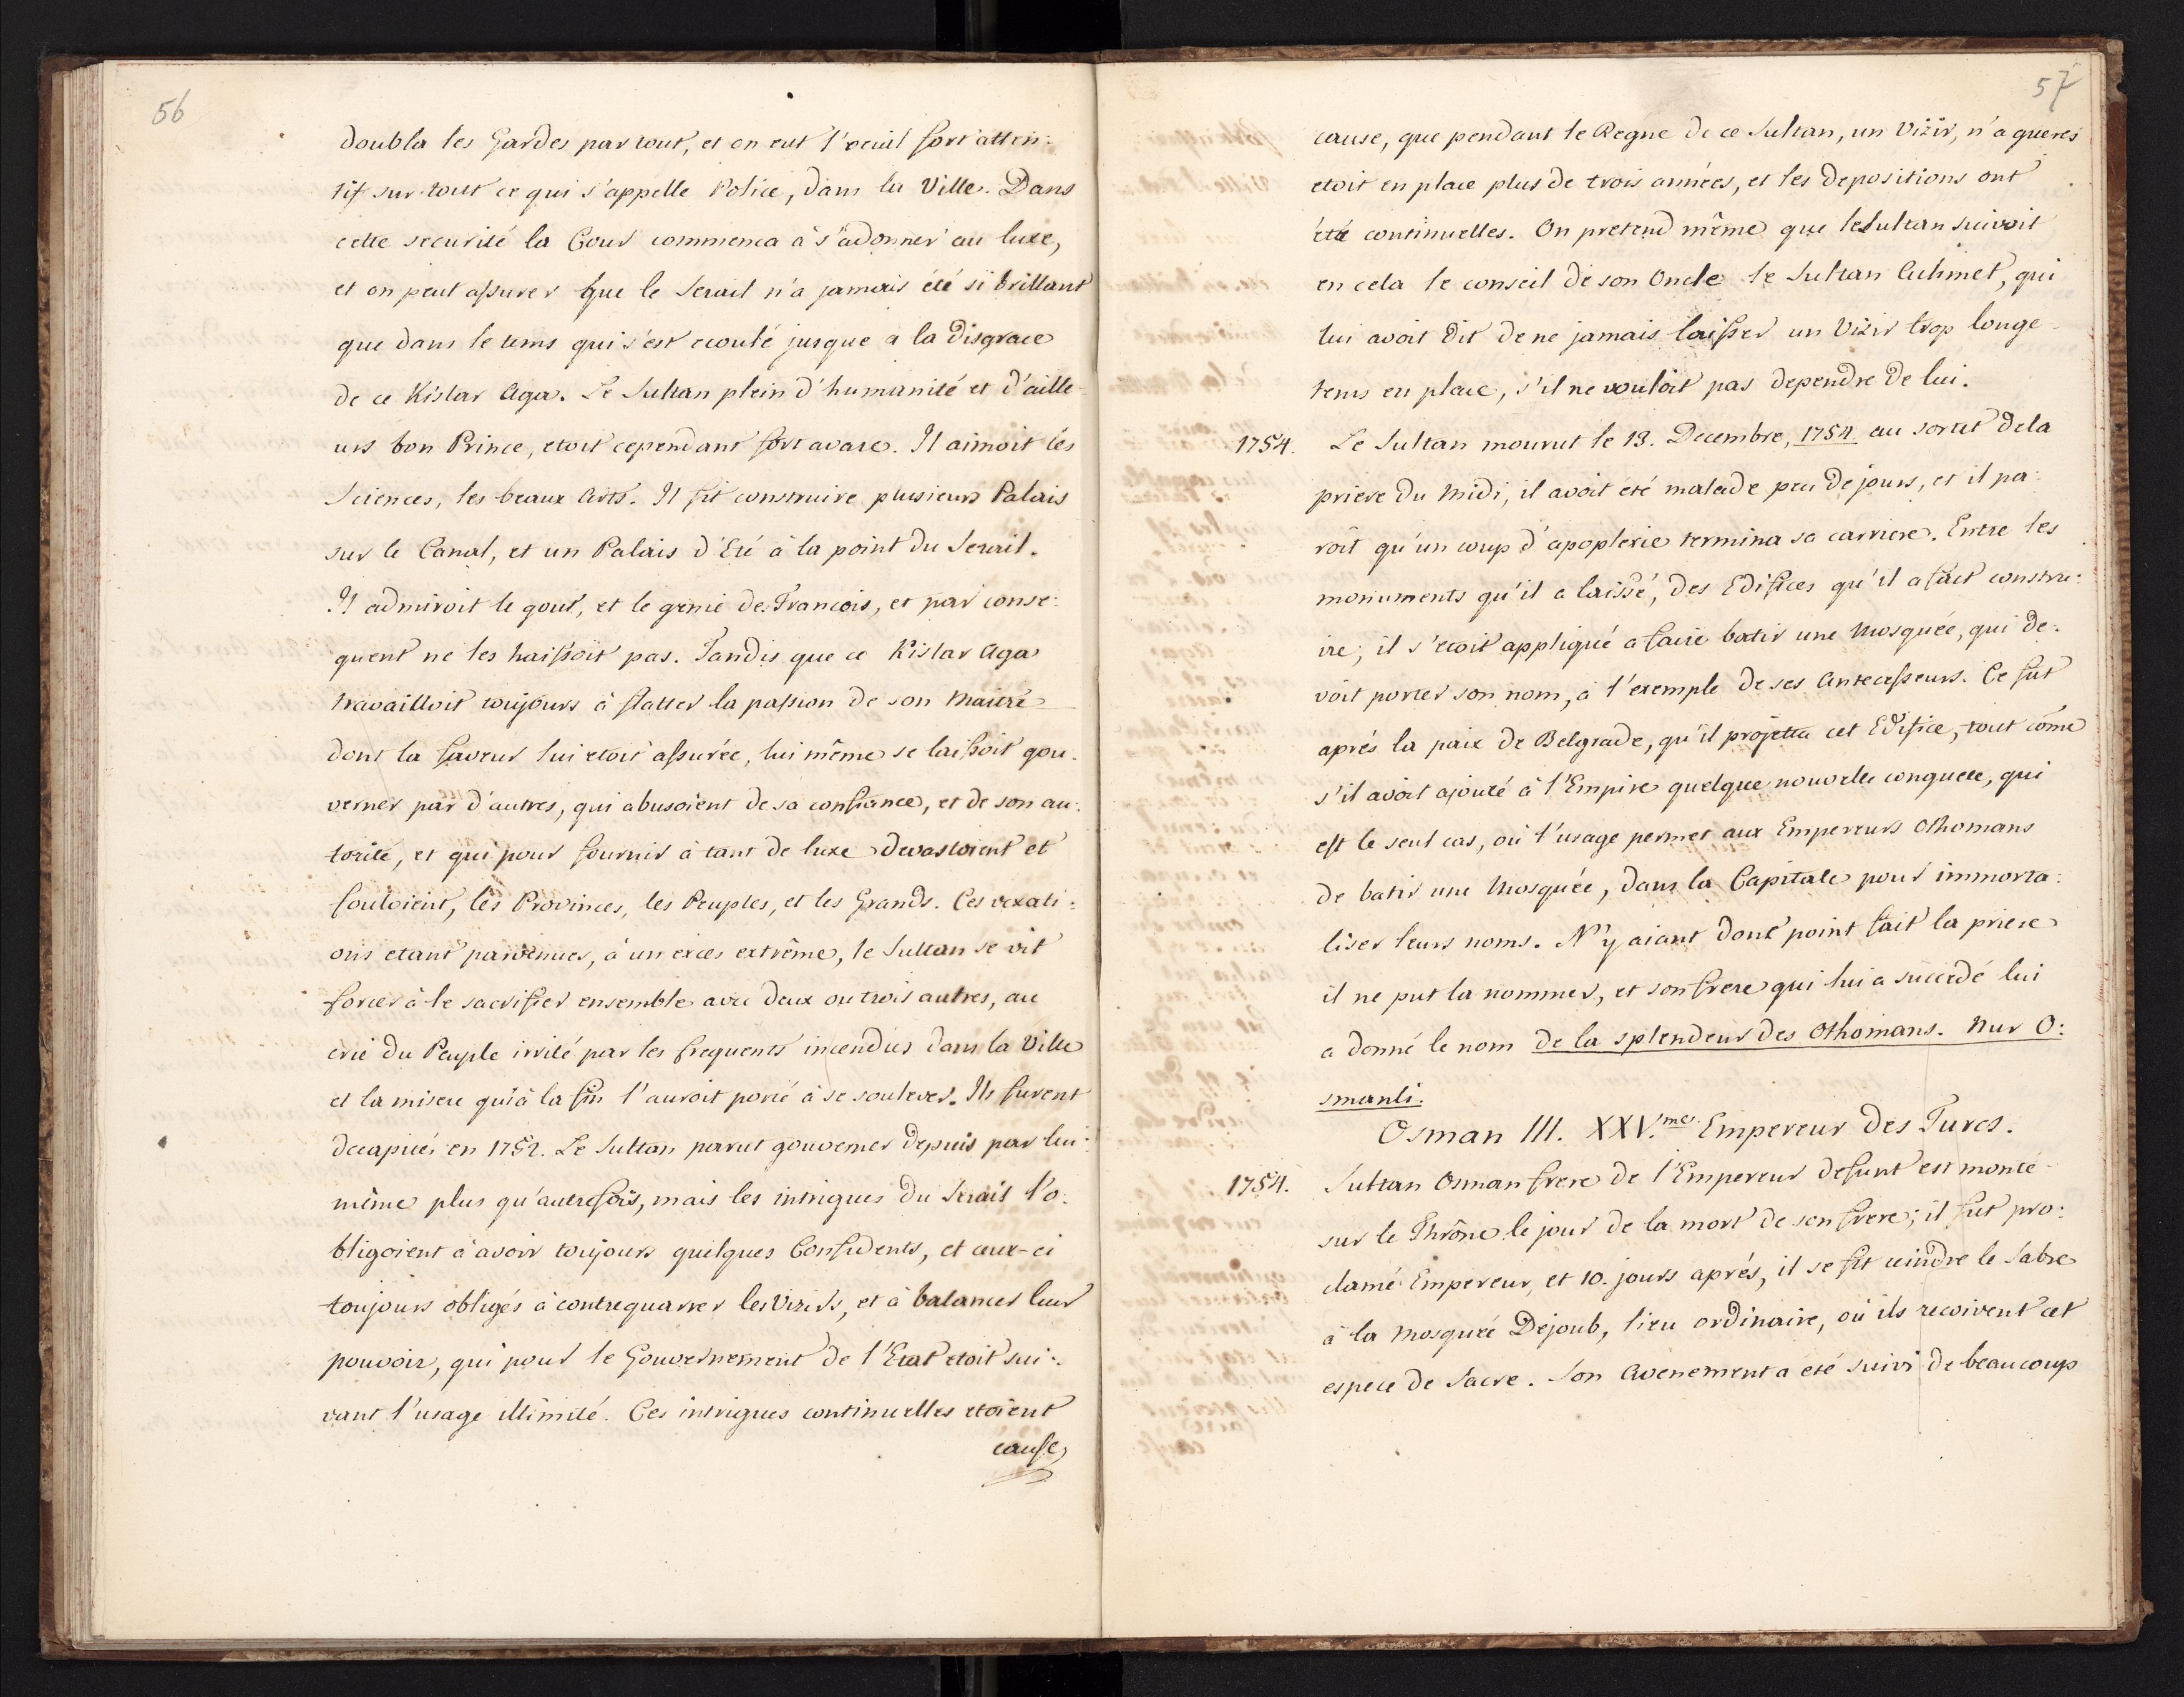 56
doubla les Gardes par tout, et on eut l'oeuil fort atten:
tif sur tout ce qui s'appelle Police, dans la Ville. Dans
cette securité la Cour commenca à s'adonner au luxe,
et on peut assurer que le Serail n'a jamais été si brillant
que dans le tems qui s'est ecoulé jusque a la Disgrace
de ce Kislar Aga. Le Sultan plein d'humanité et d'aille
urs bon Prince, etoit cependant fort avare. Il aimoit les
Sciences, les beaux Arts. Il fit construire plusieurs Palais
sur le Canal, et un Palais d'Eté à la point du Serail.
Il admiroit le gout, et le genie des Francois, et par conse:
quent ne les haissoit pas. Tandis que ce Kislar Aga
travailloit toujours à flatter la passion de son Maitre
dont la faveur lui etoit assurée, lui même se laissoit gou:
verner par d'autres, qui abusoient de sa confiance, et de son au:
torité, et qui pour fournir à tant de luxe devastoient et
fouloient, les Provinces, les Peuples, et les Grands. Ces vexati:
ons etant parvenues, à un exces extrême, le Sultan se vit
forcer à le sacrifier ensemble avec deux ou trois autres, au
crie du Peuple irrité par les frequents incendies dans la Ville
et la misere qui à la fin l'auroit porté à se soulever. Ils furent
decapités en 1752. Le Sultan parut gouverner depuis par lui:
même plus qu'autrefois, mais les intrigues du Serail l'o:
bligoient à avoir toujours quelques Confidents, et ceux-ci
toujours obligés à contrequarrer les Vizirs, et à balancer leur
pouvoir, qui pour le Gouvernement de l'Etat etoit sui:
vant l'usage illimité. Ces intrigues continuelles etoient
cause,
57
cause, que pendant le Regne de ce Sultan, un Vizir, n'a gueres
etoit en place plus de trois années, et les depositions ont
été continuelles. On pretend même que le Sultan suivoit
en cela le conseil de son Oncle le Sultan Achmet, qui
lui avoit dit de ne jamais laisser un Vizir trop longe
tems en place, s'il ne vouloit pas dependre de lui.
1754. Le Sultan mourut le 13. Decembre, 1754 au sortit dela
priere du Midi, il avoit eté malade peu de jours, et il pa:
roit qu'un coup d'apoplexie termina sa carriere. Entre les
monuments qu'il a laissé, des Edifices qu'il a fait constru:
ire, il s'etoit appliqué a faire batir une Mosquée, qui de:
voit porter son nom, à l'exemple de ses Antecesseurs. Ce fut
aprés la paix de Belgrade, qu'il projetta cet Edifice, tout come
s'il avoit ajouté à l'Empire quelque nouvelle conquete, qui
est le seul cas, où l'usage permet aux Empereurs Othomans
de batir une Mosquée, dans la Capitale pour immorta:
liser leurs noms. N'y aiant donc point fait la priere
il ne put la nommer, et son frere qui lui a succedé lui
a donné le nom de la splendeur des Othomans. Nur O:
smanli.
Osman III. XXV.mes. Empereur Des Turcs.
1754. Sultan Osman frere de l'Empereur defunt est monté
sur le Thrône le jour de la mort de son frere; il fut pro:
clamé Empereur, et 10. jours aprés, il se fit ceindre le Sabre
à la Mosquée Dejoub, lieu ordinaire, où ils recoivent cet
espece de Sacre. Son Avenement a eté suivi de beaucoup